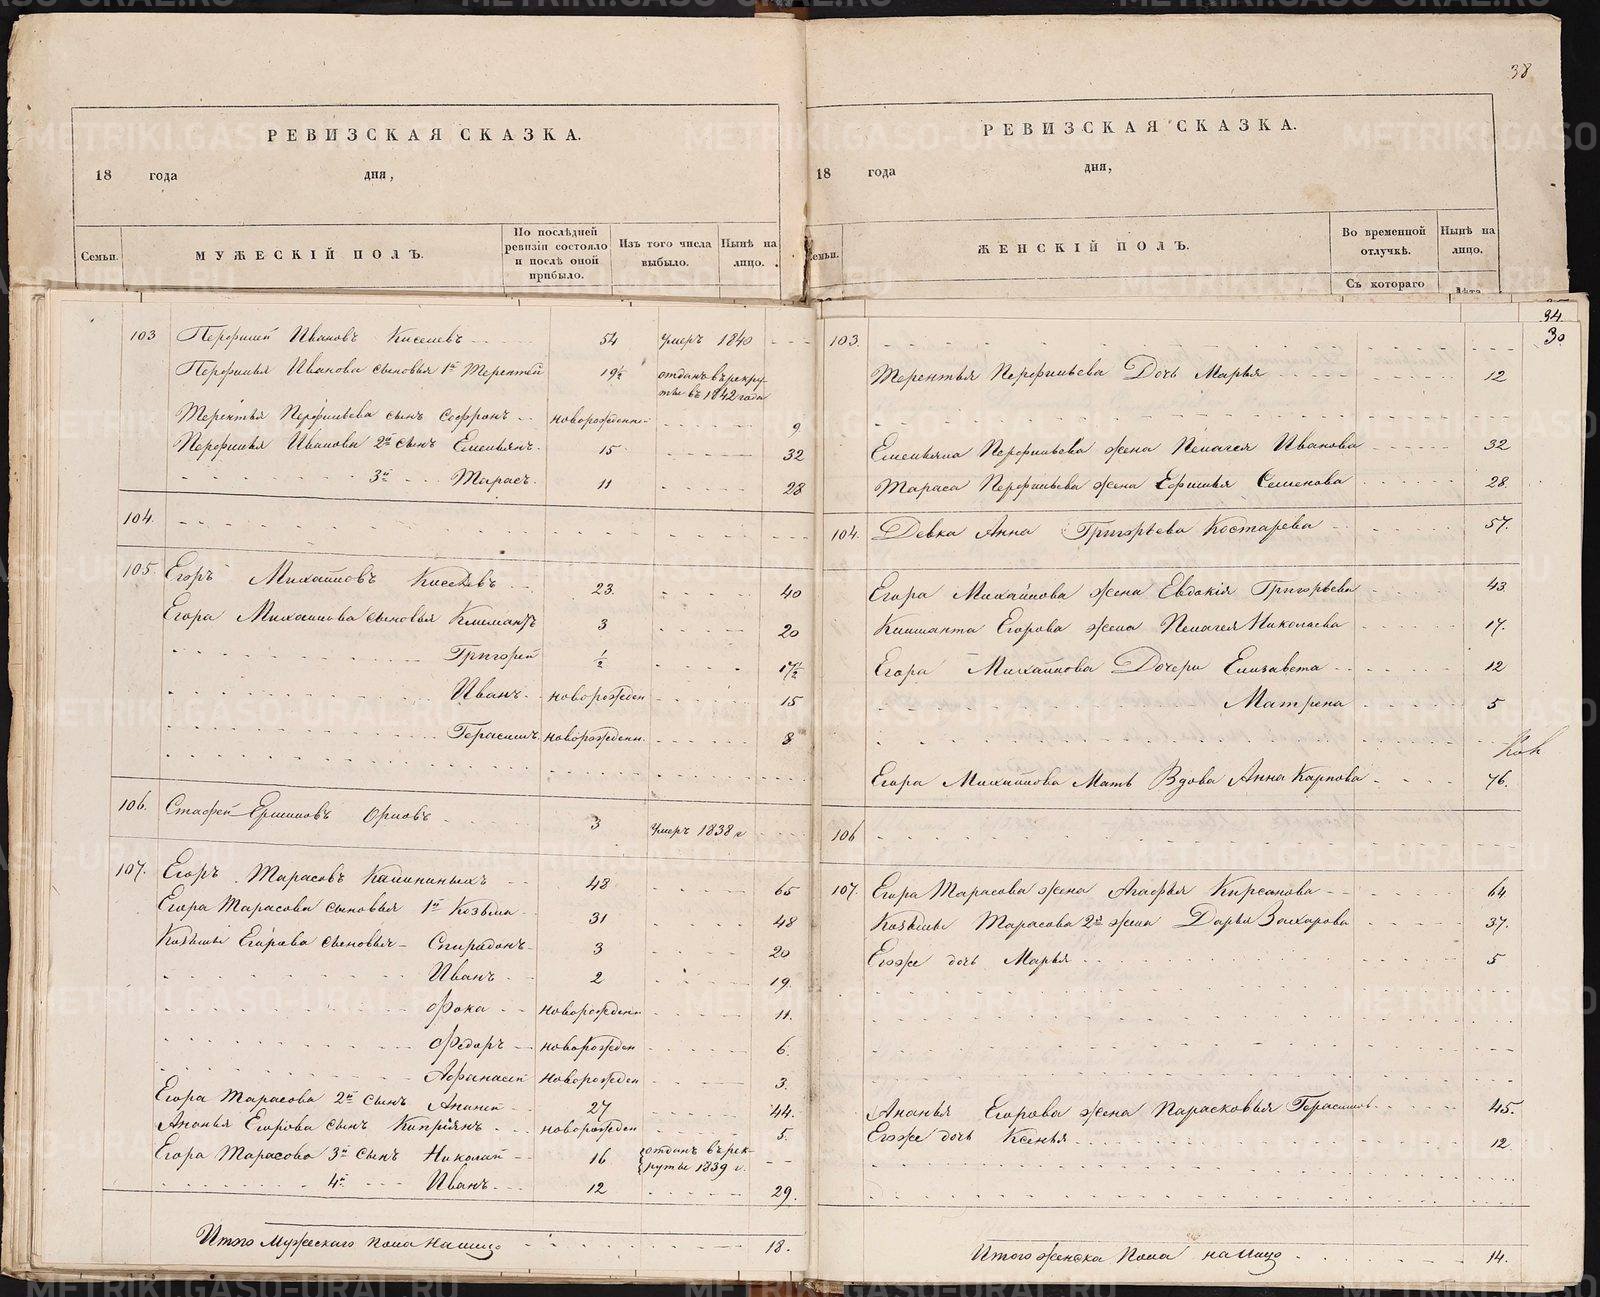 38
РЕВИЗСКАЯ СКАЗКА.
18 года дня,
Семьи.
МУЖЕСКІЙ ПОЛЪ.
По послѣдней ревизіи состояло и послѣ оной прибыло.
Изъ того числа выбыло.
Нынѣ на лицо.
103 Перфилей Ивановъ Киселевъ 54 умеръ 1840
Перфилья Иванова сыновья 1й Терентей 19½ отданъ въ рекру-
ты въ 1842 года
Терентья Перфильева сынъ Софронъ новорожденн 9
Перфилья Иванова 2й сынъ Емельянъ 15 32
3й Тарасъ 11 28
104.
105 Егоръ Михайловъ Киселевъ 23. 40
Егора Михайлова сыновья Климантъ 3 20
Григорей ½ 17½
Иванъ новорожден 15
Герасимъ новорожденн. 8
106. Стафей Ермиловъ Орловъ 3 умеръ 1838 г
107. Егоръ Тарасовъ Калининыхъ 48 65
Егора Тарасова сыновья 1й Козьма 31 48
Козьмы Егорова сыновья Спиридонъ 3 20
Иванъ 2 19.
Фока новорожденн 11.
Федоръ новорожден 6.
Афанасей новорожден 3.
Егора Тарасова 2й сынъ Ананей 27 44.
Ананья Егорова сынъ Кипріянъ новорожден 5.
Егора Тарасова 3й сынъ Николай 16 отданъ въ рек-
руты 1839 г.
4й Иванъ 12 29.
Итого Мужескаго пола на лицо 18.
РЕВИЗСКАЯ СКАЗКА.
18 года дня,
Семьи.
ЖЕНСКІЙ ПОЛЪ.
Во временной отлучкѣ.
Нынѣ на лицо.
Съ котораго
Лѣта
34.
30
103.
Терентья Перфильева Дочь Марья 12
Емельяна Перфильева жена Пелагея Иванова 32
Тараса Перфильева жена Ефимья Семенова 28.
104. Девка Анна Григорьева Костарева 57.
Егора Михайлова жена Евдокія Григорьева 43
Климанта Егорова жена Пелагея Николаева 17.
Егора Михайлова Дочери Елизавета 12
Матрена 5
Егора Михайлова Мать Вдова Анна Карпова 76.
106
107. Егора Тарасова жена Агафья Кирсанова 64
Козьмы Тарасова 2я жена Дарья Захарова 37.
Егоже дочь Марья 5
Ананья Егорова жена Парасковья Герасимов. 45.
Егоже дочь Ксенья 12
Итого женска Пола на лицо 14.
METRIKI.GASO-URAL.RU